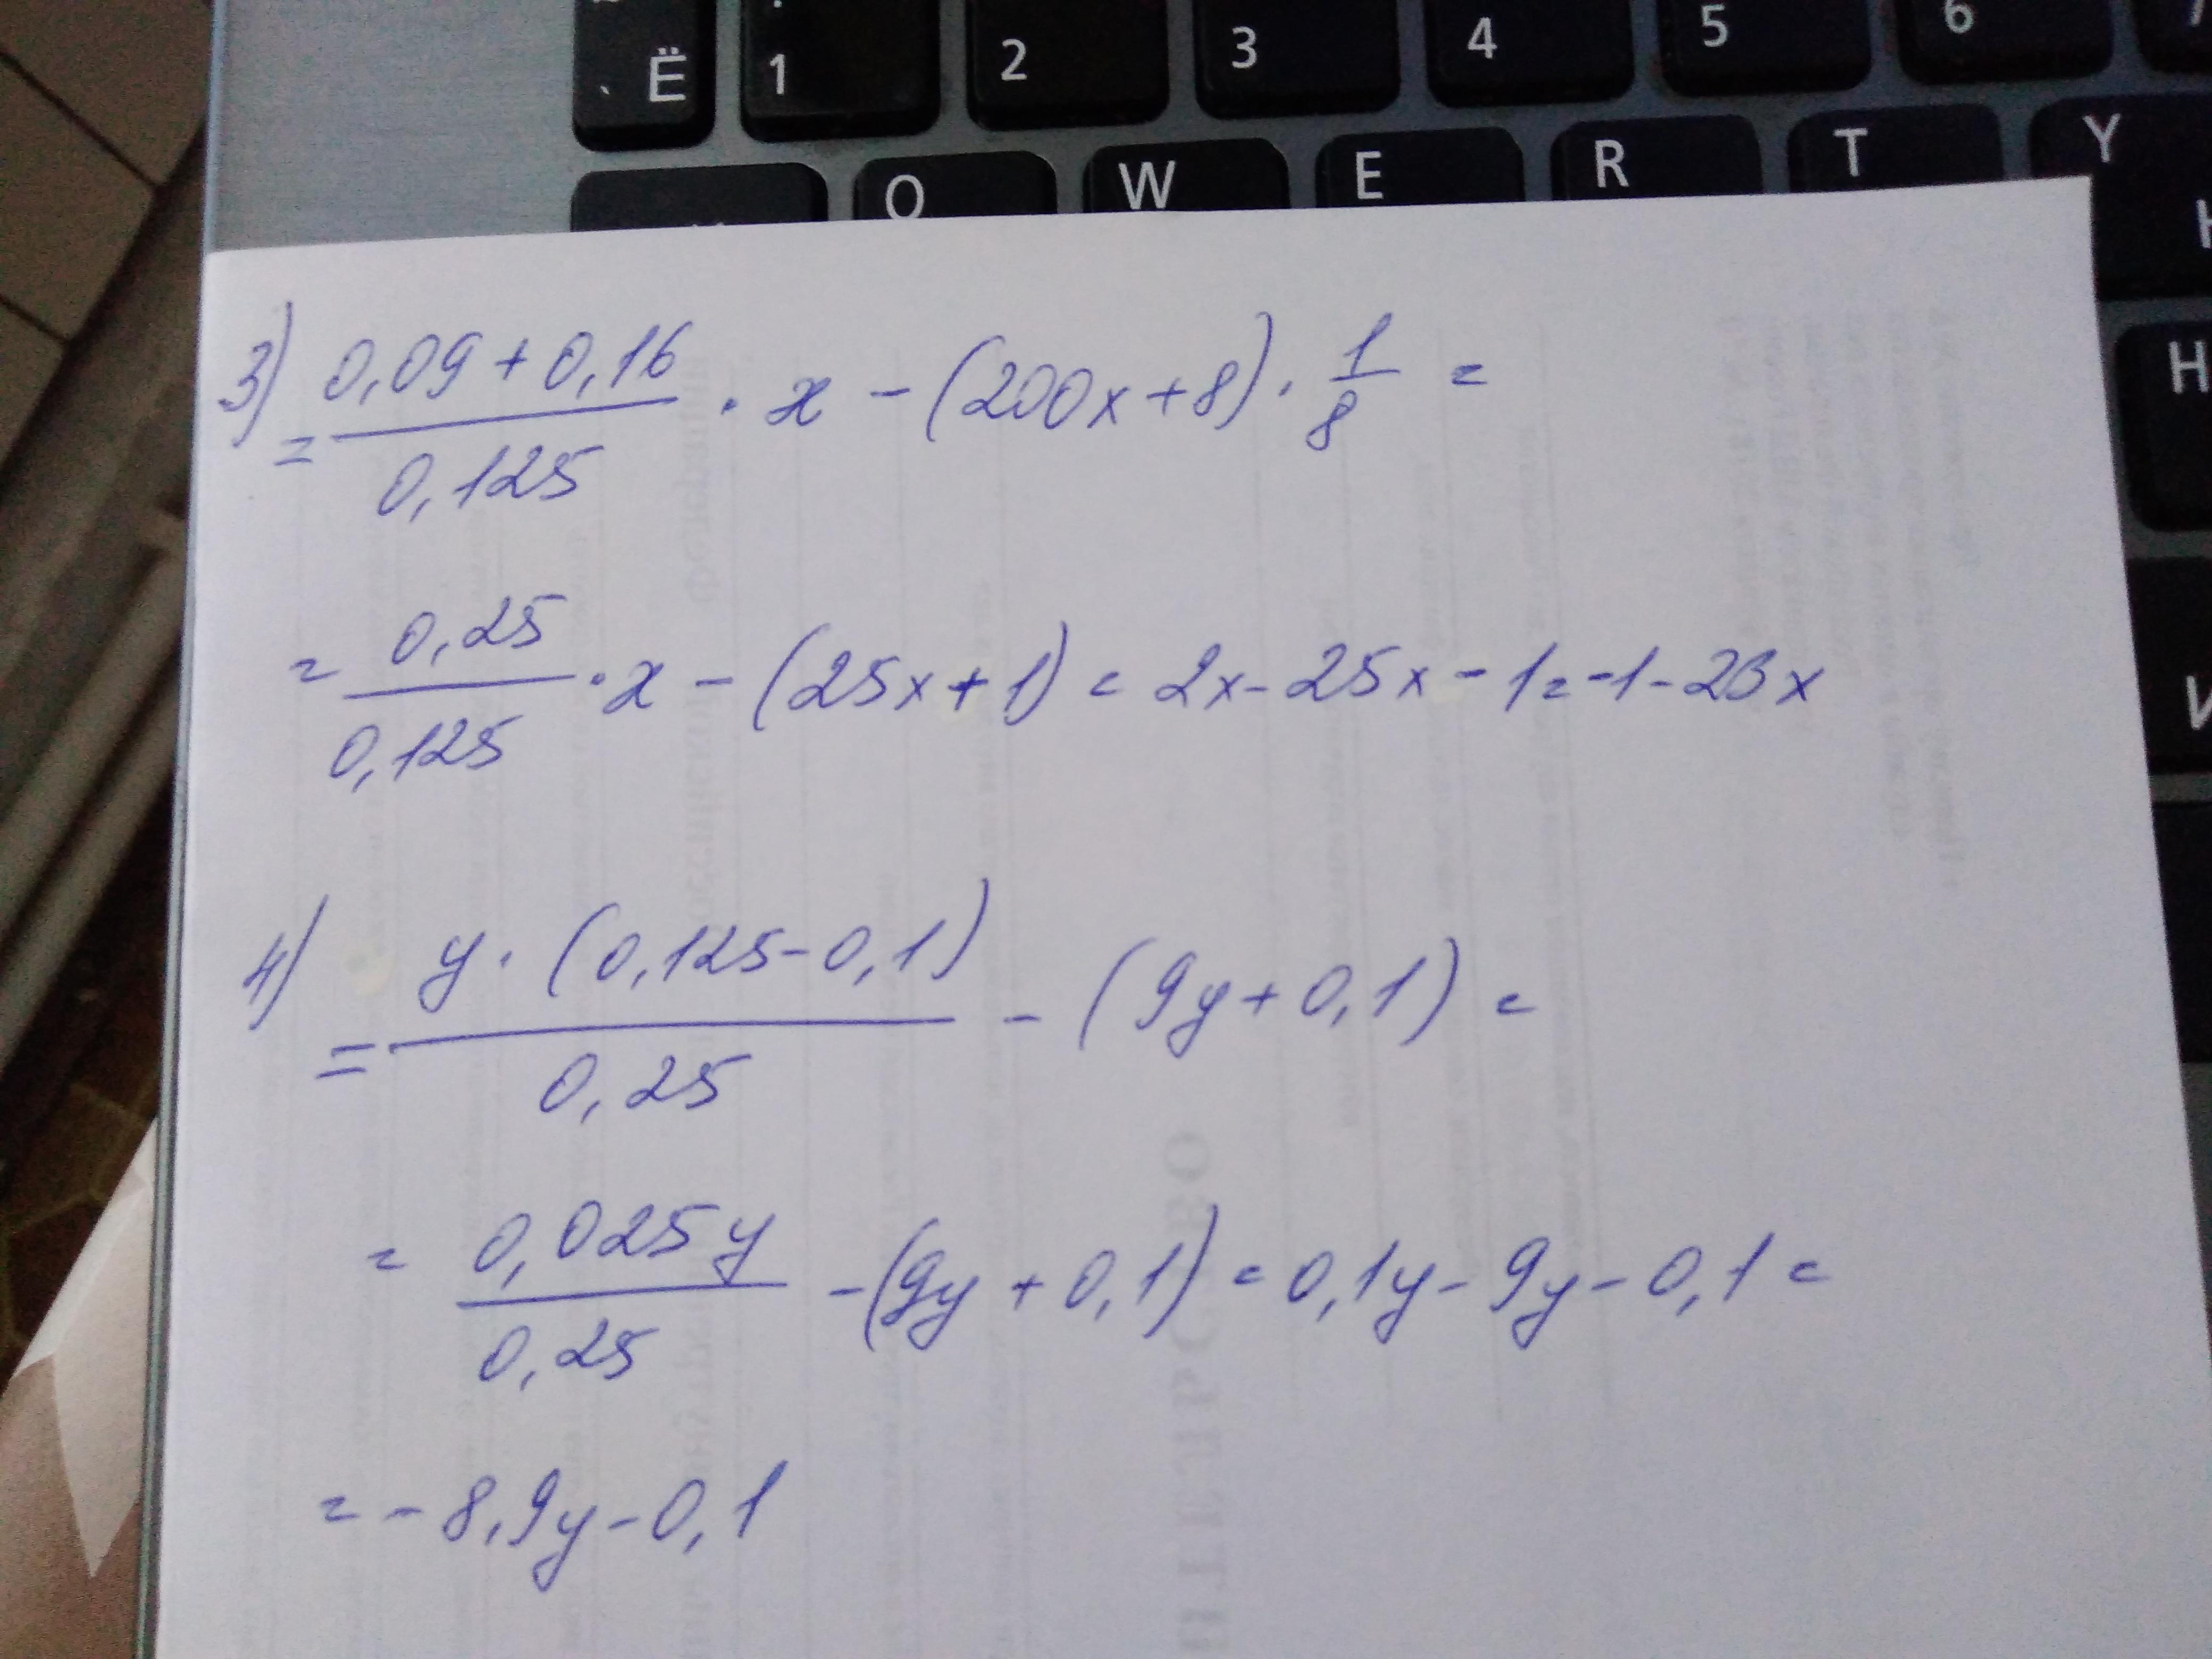 Ё 1 2 3 4 5 6
Q W E R T Y
H
3) = (0,09 + 0,16)/0,125 · x - (200x + 8) · 1/8 =
= 0,25/0,125 · x - (25x + 1) = 2x - 25x - 1 = -1 - 23x
4) = y · (0,125 - 0,1)/0,25 - (9y + 0,1) =
= 0,025y/0,25 - (9y + 0,1) = 0,1y - 9y - 0,1 =
= - 8,9y - 0,1